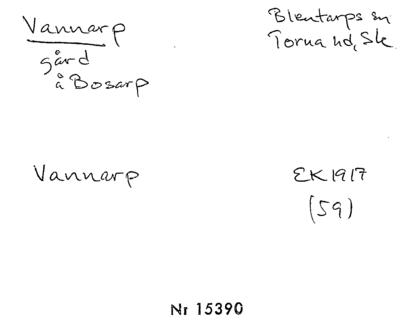 Vannarp
gård
å Bosarp
Blentarps sn
Torna hd, Sk.
Vannarp
EK 1917
(59)
Nr 15390